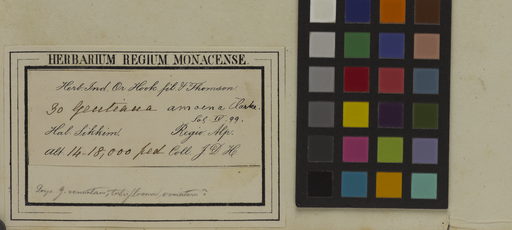 HERBARIUM REGIUM MONACENSE.
Herb. Ind. Or. Hook. fil. & Thomson
30 Gentiana amoena Clarke.
99.
Hab. Sikkim. Regio Alp.
alt. 14-18,000 ped. Coll. J. D. H.